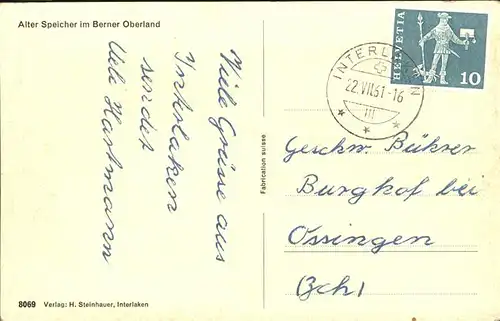 Alter Speicher im Berner Oberland
Viele Grüsse aus
Interlaken
sendet
Uele Hartmann
Fabrication suisse
HELVETIA
10
INTERLAKEN
22.VII.61-16
III
Geschw. Bührer
Burghof bei
Ossingen
(Zch)
8069 Verlag: H. Steinhauer, Interlaken